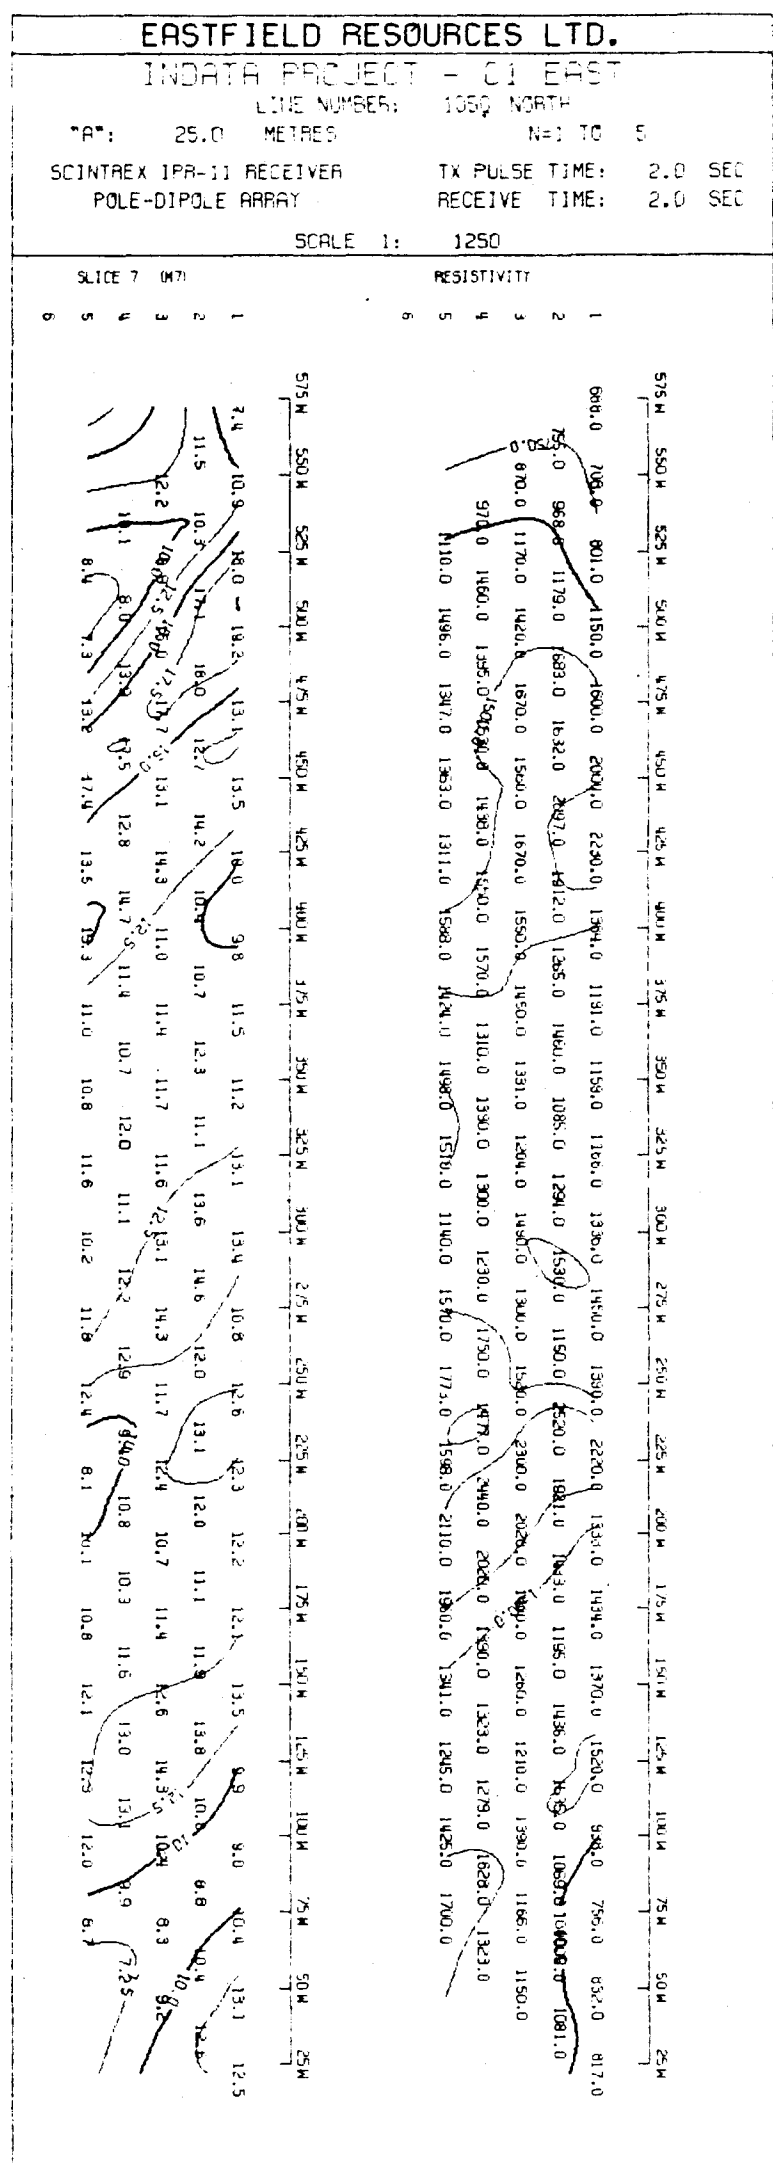 EASTFIELD RESOURCES LTD.
INDATA PROJECT - C1 EAST
LINE NUMBER: 1050 NORTH
"A": 25.0 METRES N=1 TO 5
SCINTREX IPR-11 RECEIVER TX PULSE TIME: 2.0 SEC
POLE-DIPOLE ARRAY RECEIVE TIME: 2.0 SEC
SCALE 1: 1250
SLICE 7 (M7) RESISTIVITY
6 5 4 3 2 1 6 5 4 3 2 1
575 W 550 W 525 W 500 W 475 W 450 W 425 W 400 W 375 W 350 W 325 W 300 W 275 W 250 W 225 W 200 W 175 W 150 W 125 W 100 W 75 W 50 W 25 W
7.4 10.9 18.0 13.1 13.5 9.8 11.5 11.2 13.1 13.4 10.8 12.6 12.3 12.2 12.1 13.5 9.9 9.0 10.4 13.1 12.5
11.5 10.3 17.1 18.0 12.7 14.2 10.4 10.7 12.3 11.1 13.6 14.6 12.0 13.1 12.0 11.1 11.9 13.8 8.8 10.4
12.2 13.1 14.3 11.0 11.4 11.7 11.6 13.1 14.3 11.7 12.4 10.7 11.4 12.6 14.3 10.4 8.3 9.2
10.1 8.0 13.9 12.8 14.7 11.4 10.7 12.0 11.1 12.2 12.9 10.8 10.3 11.6 13.0 13.1 9.9
8.4 7.3 13.2 17.4 13.5 11.0 10.8 11.6 10.2 11.8 12.4 8.1 10.1 10.8 12.1 12.9 12.0 8.7
575 W 550 W 525 W 500 W 475 W 450 W 425 W 400 W 375 W 350 W 325 W 300 W 275 W 250 W 225 W 200 W 175 W 150 W 125 W 100 W 75 W 50 W 25 W
688.0 708.0 801.0 1150.0 1600.0 2230.0 1191.0 1159.0 1166.0 1336.0 1450.0 1390.0 2220.0 1434.0 1370.0 1520.0 756.0 852.0 817.0
755.0 968.0 1179.0 1683.0 1632.0 1912.0 1265.0 1460.0 1085.0 1294.0 1530.0 1150.0 2520.0 1195.0 1436.0 1081.0
870.0 1170.0 1420.0 1670.0 1560.0 1670.0 1550.0 1450.0 1331.0 1204.0 1490.0 1300.0 2300.0 1260.0 1210.0 1390.0 1166.0 1150.0
970.0 1460.0 1438.0 1570.0 1310.0 1390.0 1300.0 1230.0 1750.0 2440.0 1323.0 1279.0 1628.0 1323.0
1110.0 1496.0 1347.0 1363.0 1311.0 1588.0 1424.0 1498.0 1518.0 1140.0 1598.0 2110.0 1341.0 1245.0 1425.0 1700.0